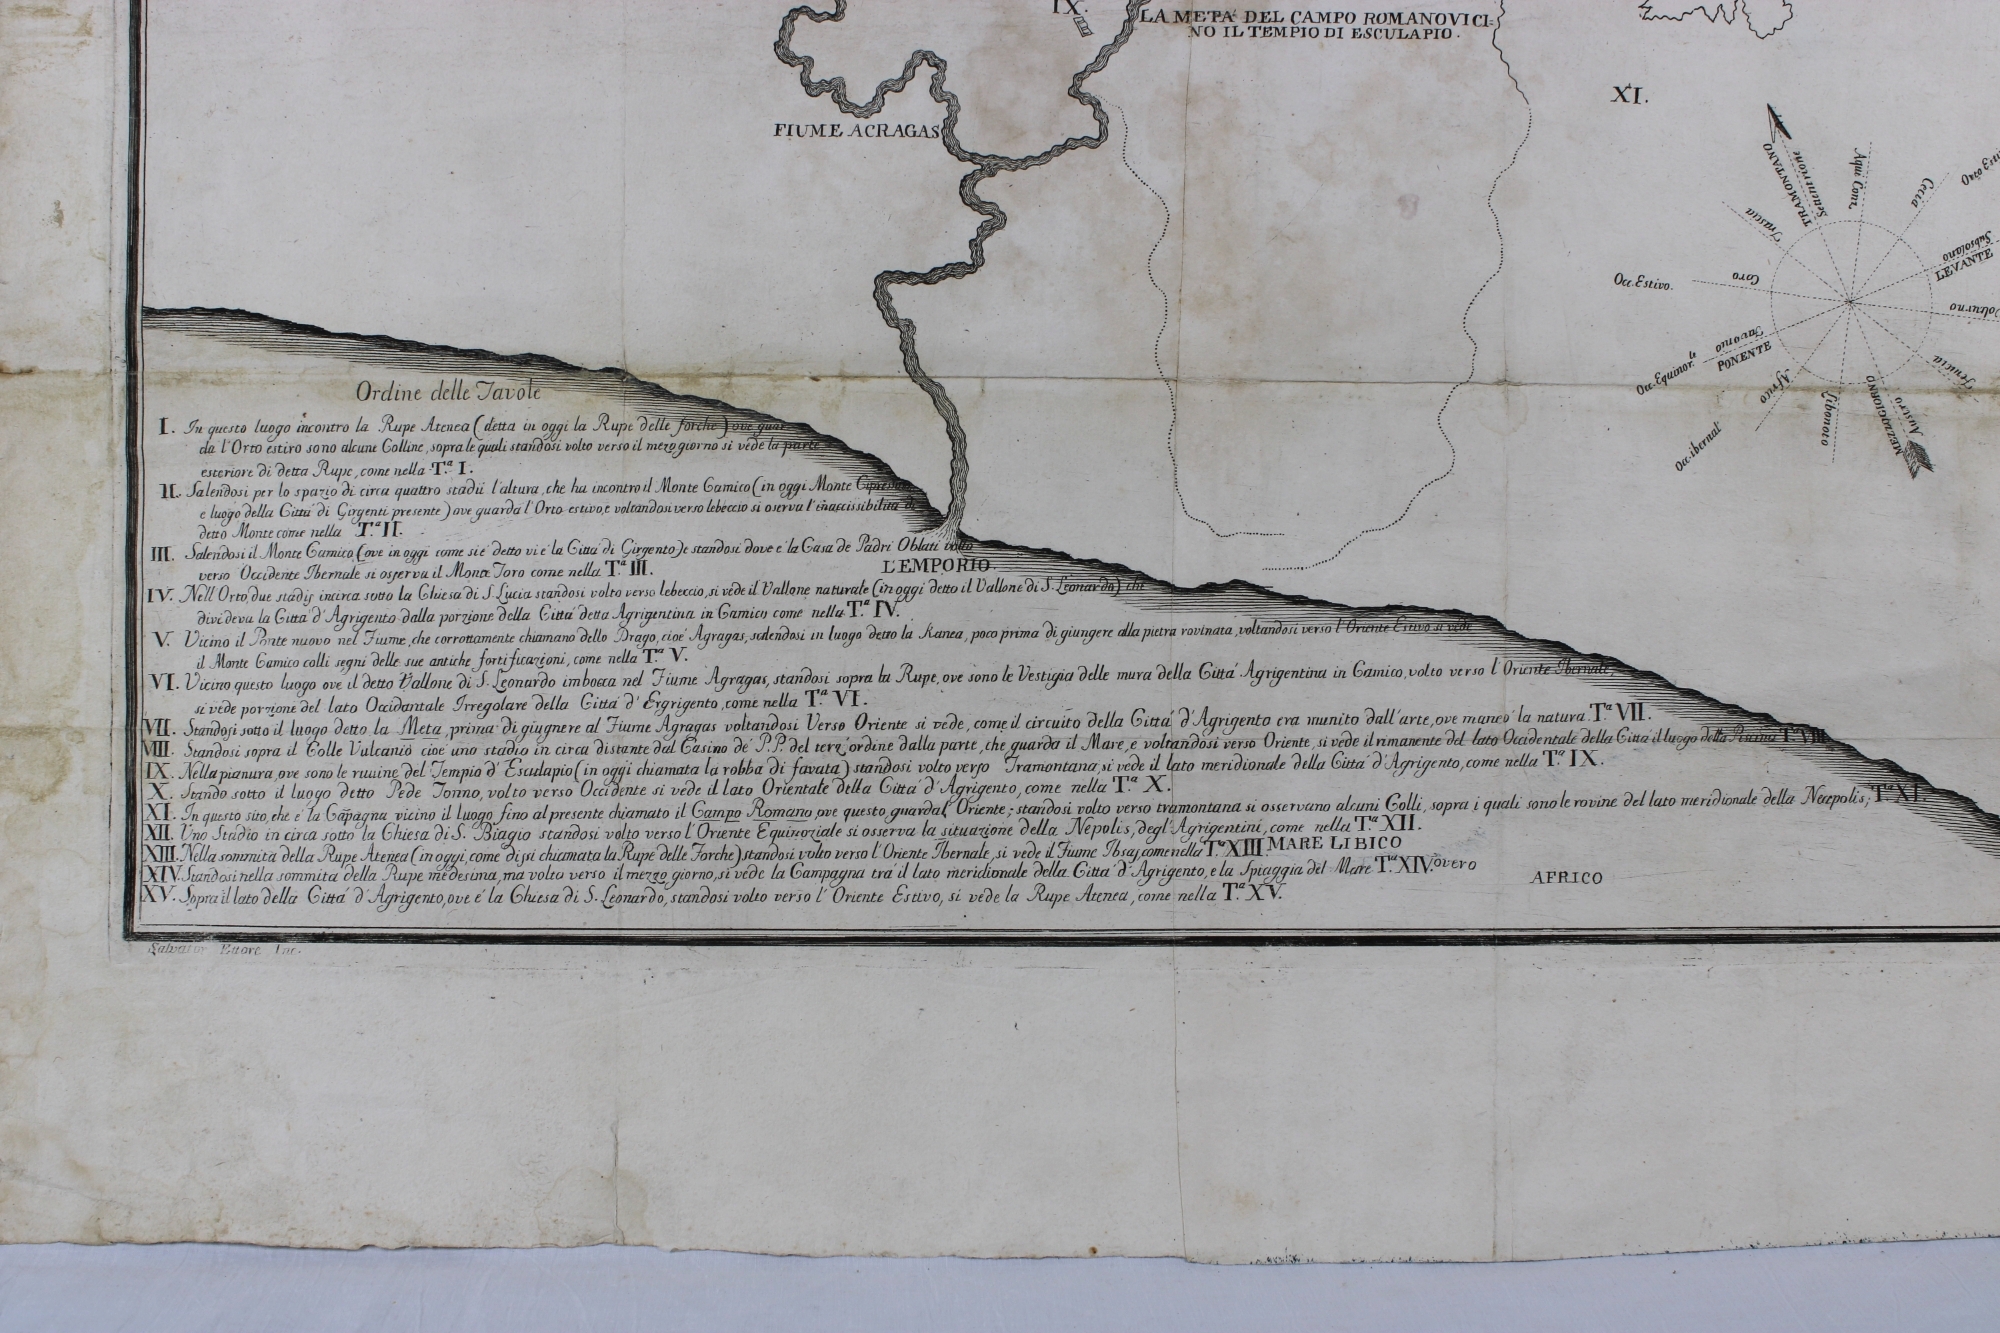 IX.
LA META DEL CAMPO ROMANO VICI-
NO IL TEMPIO DI ESCULAPIO.
XI.
FIUME ACRAGAS
TRAMONTANO
Settentrione
Aqui Cont.
Cecia
Trascia
Subsolano
LEVANTE
Occ. Estivo.
Coro
Volturno
Occ. Equinor.le
Favonio
PONENTE
Africo
Occ. ibernal
Libonoto
MEZZOGIORNO
Austro
Ordine delle Tavole
I. In questo luogo incontro la Rupe Atenea (detta in oggi la Rupe delle forche) ove guar
da l'Orto estivo sono alcune Colline, sopra le quali standosi volto verso il mezo giorno si vede la parte
esteriore di detta Rupe, come nella T.a I.
II. Salendosi per lo spazio di circa quattro stadii l'altura, che ha incontro il Monte Camico (in oggi Monte
e luogo della Cittá di Girgenti presente) ove guarda l'Orto estivo, e voltandosi verso lebeccio si oserva l'inaccissibilitá di
detto Monte come nella T.a II.
III. Salendosi il Monte Camico (ove in oggi come si é detto vi é la Cittá di Girgento) e standosi dove é la Casa de Padri Oblati volto
verso Occidente Ibernale si osserva il Monte Toro come nella T.a III.
L'EMPORIO.
IV. Nell'Orto, due stadij incirca sotto la Chiesa di S. Lucia standosi volto verso lebeccio, si vede il Vallone naturale (in oggi detto il Vallone di S. Leonardo) che
divideva la Cittá d'Agrigento dalla porzione della Cittá detta Agrigentina in Camico come nella T.a IV.
V. Vicino il Ponte nuovo nel Fiume, che corrottamente chiamano dello Drago, cioé Agragas, salendosi in luogo detto la Kanea, poco prima di giungere alla pietra rovinata, voltandosi verso l'Oriente Estivo si vede
il Monte Camico colli segni delle sue antiche fortificazioni, come nella T.a V.
VI. Vicino questo luogo ove il detto Vallone di S. Leonardo imbocca nel Fiume Agragas, standosi sopra la Rupe, ove sono le Vestigia delle mura della Cittá Agrigentina in Camico, volto verso l'Oriente Ibernale,
si vede porzione del lato Occidantale Irregolare della Cittá d'Ergrigento, come nella T.a VI.
VII. Standosi sotto il luogo detto la Meta, prima di giugnere al Fiume Agragas voltandosi Verso Oriente si vede, come il circuito della Cittá d'Agrigento era munito dall'arte, ove mancó la natura. T.a VII.
VIII. Standosi sopra il Colle Vulcanio cioé uno stadio in circa distante dal Casino de P.P. del terz'ordine dalla parte, che guarda il Mare, e voltandosi verso Oriente, si vede il rimanente del lato Occidentale della Cittá il luogo della Piscina T.a VIII.
IX. Nella pianura, ove sono le ruuine del Tempio d'Esculapio (in oggi chiamata la robba di favata) standosi volto verso Tramontana, si vede il lato meridionale della Cittá d'Agrigento, come nella T.a IX.
X. Stando sotto il luogo detto Pede Tonno, volto verso Occidente si vede il lato Orientale della Cittá d'Agrigento, come nella T.a X.
XI. In questo sito, che é la Capagna vicino il luogo fino al presente chiamato il Campo Romano, ove questo guarda l'Oriente; standosi volto verso tramontana si osservano alcuni Colli, sopra i quali sono le rovine del lato meridionale della Neepolis; T.a XI.
XII. Uno Stadio in circa sotto la Chiesa di S. Biagio standosi volto verso l'Oriente Equinoziale si osserva la situazione della Nepolis, degl'Agrigentini, come nella T.a XII.
XIII. Nella sommitá della Rupe Atenea (in oggi, come dissi chiamata la Rupe delle Forche) standosi volto verso l'Oriente Ibernale, si vede il Fiume Ibsas come nella T.a XIII.
MARE LIBICO
XIV. Standosi nella sommitá della Rupe medesima, ma volto verso il mezzo giorno, si vede la Campagna trá il lato meridionale della Cittá d'Agrigento, e la Spiaggia del Mare T.a XIV.
overo
AFRICO
XV. Sopra il lato della Cittá d'Agrigento, ove é la Chiesa di S. Leonardo, standosi volto verso l'Oriente Estivo, si vede la Rupe Atenea, come nella T.a XV.
Salvator Ettore Inc.